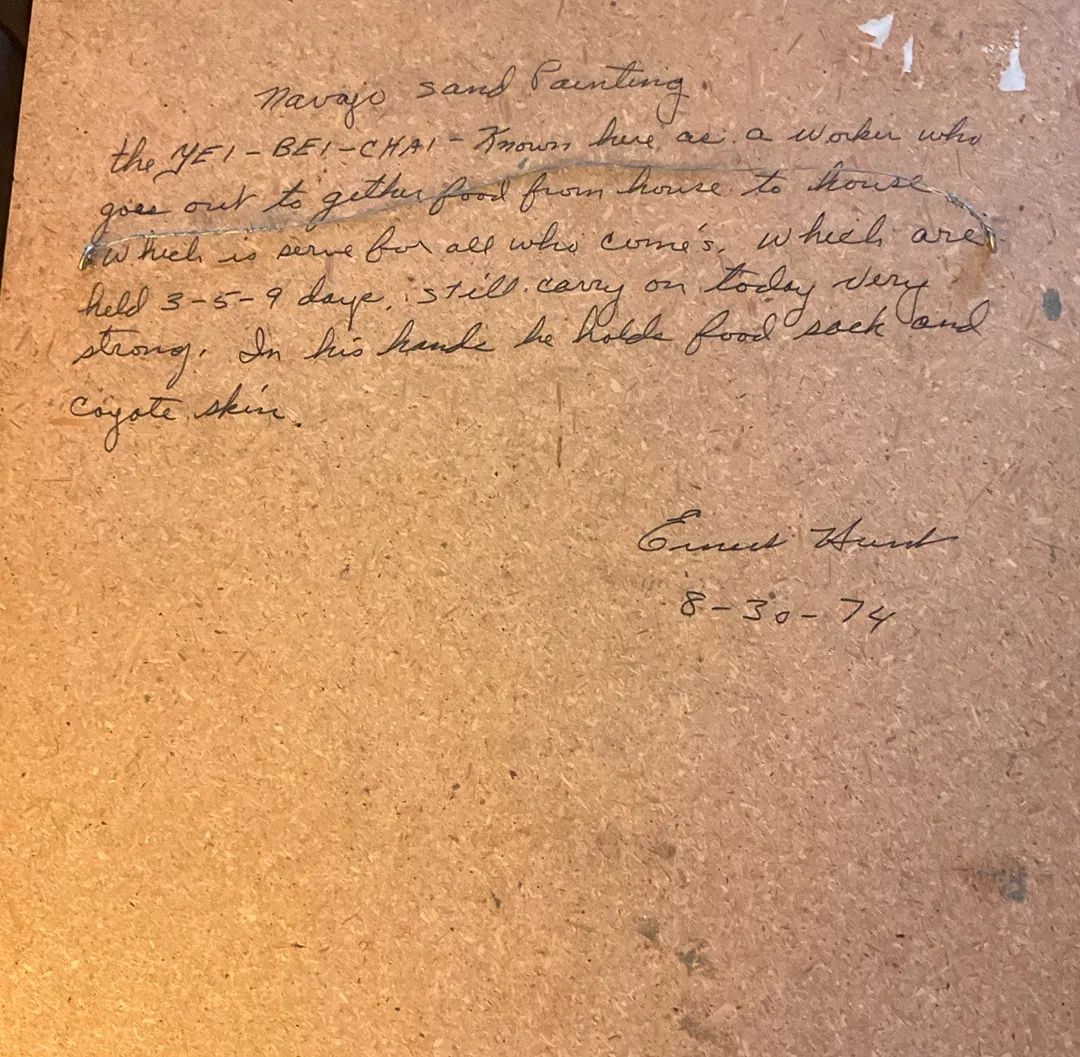 Navajo Sand Painting.
the YEI-BEI-CHAI - Known here as a worker who
goes out to gether food from house to house
which is serve for all who come's. which are
held 3-5-9 days, still carry on today very
strong. In his hands he holds food sack and
Coyote skin.
Ernest Hunt
8-30-74